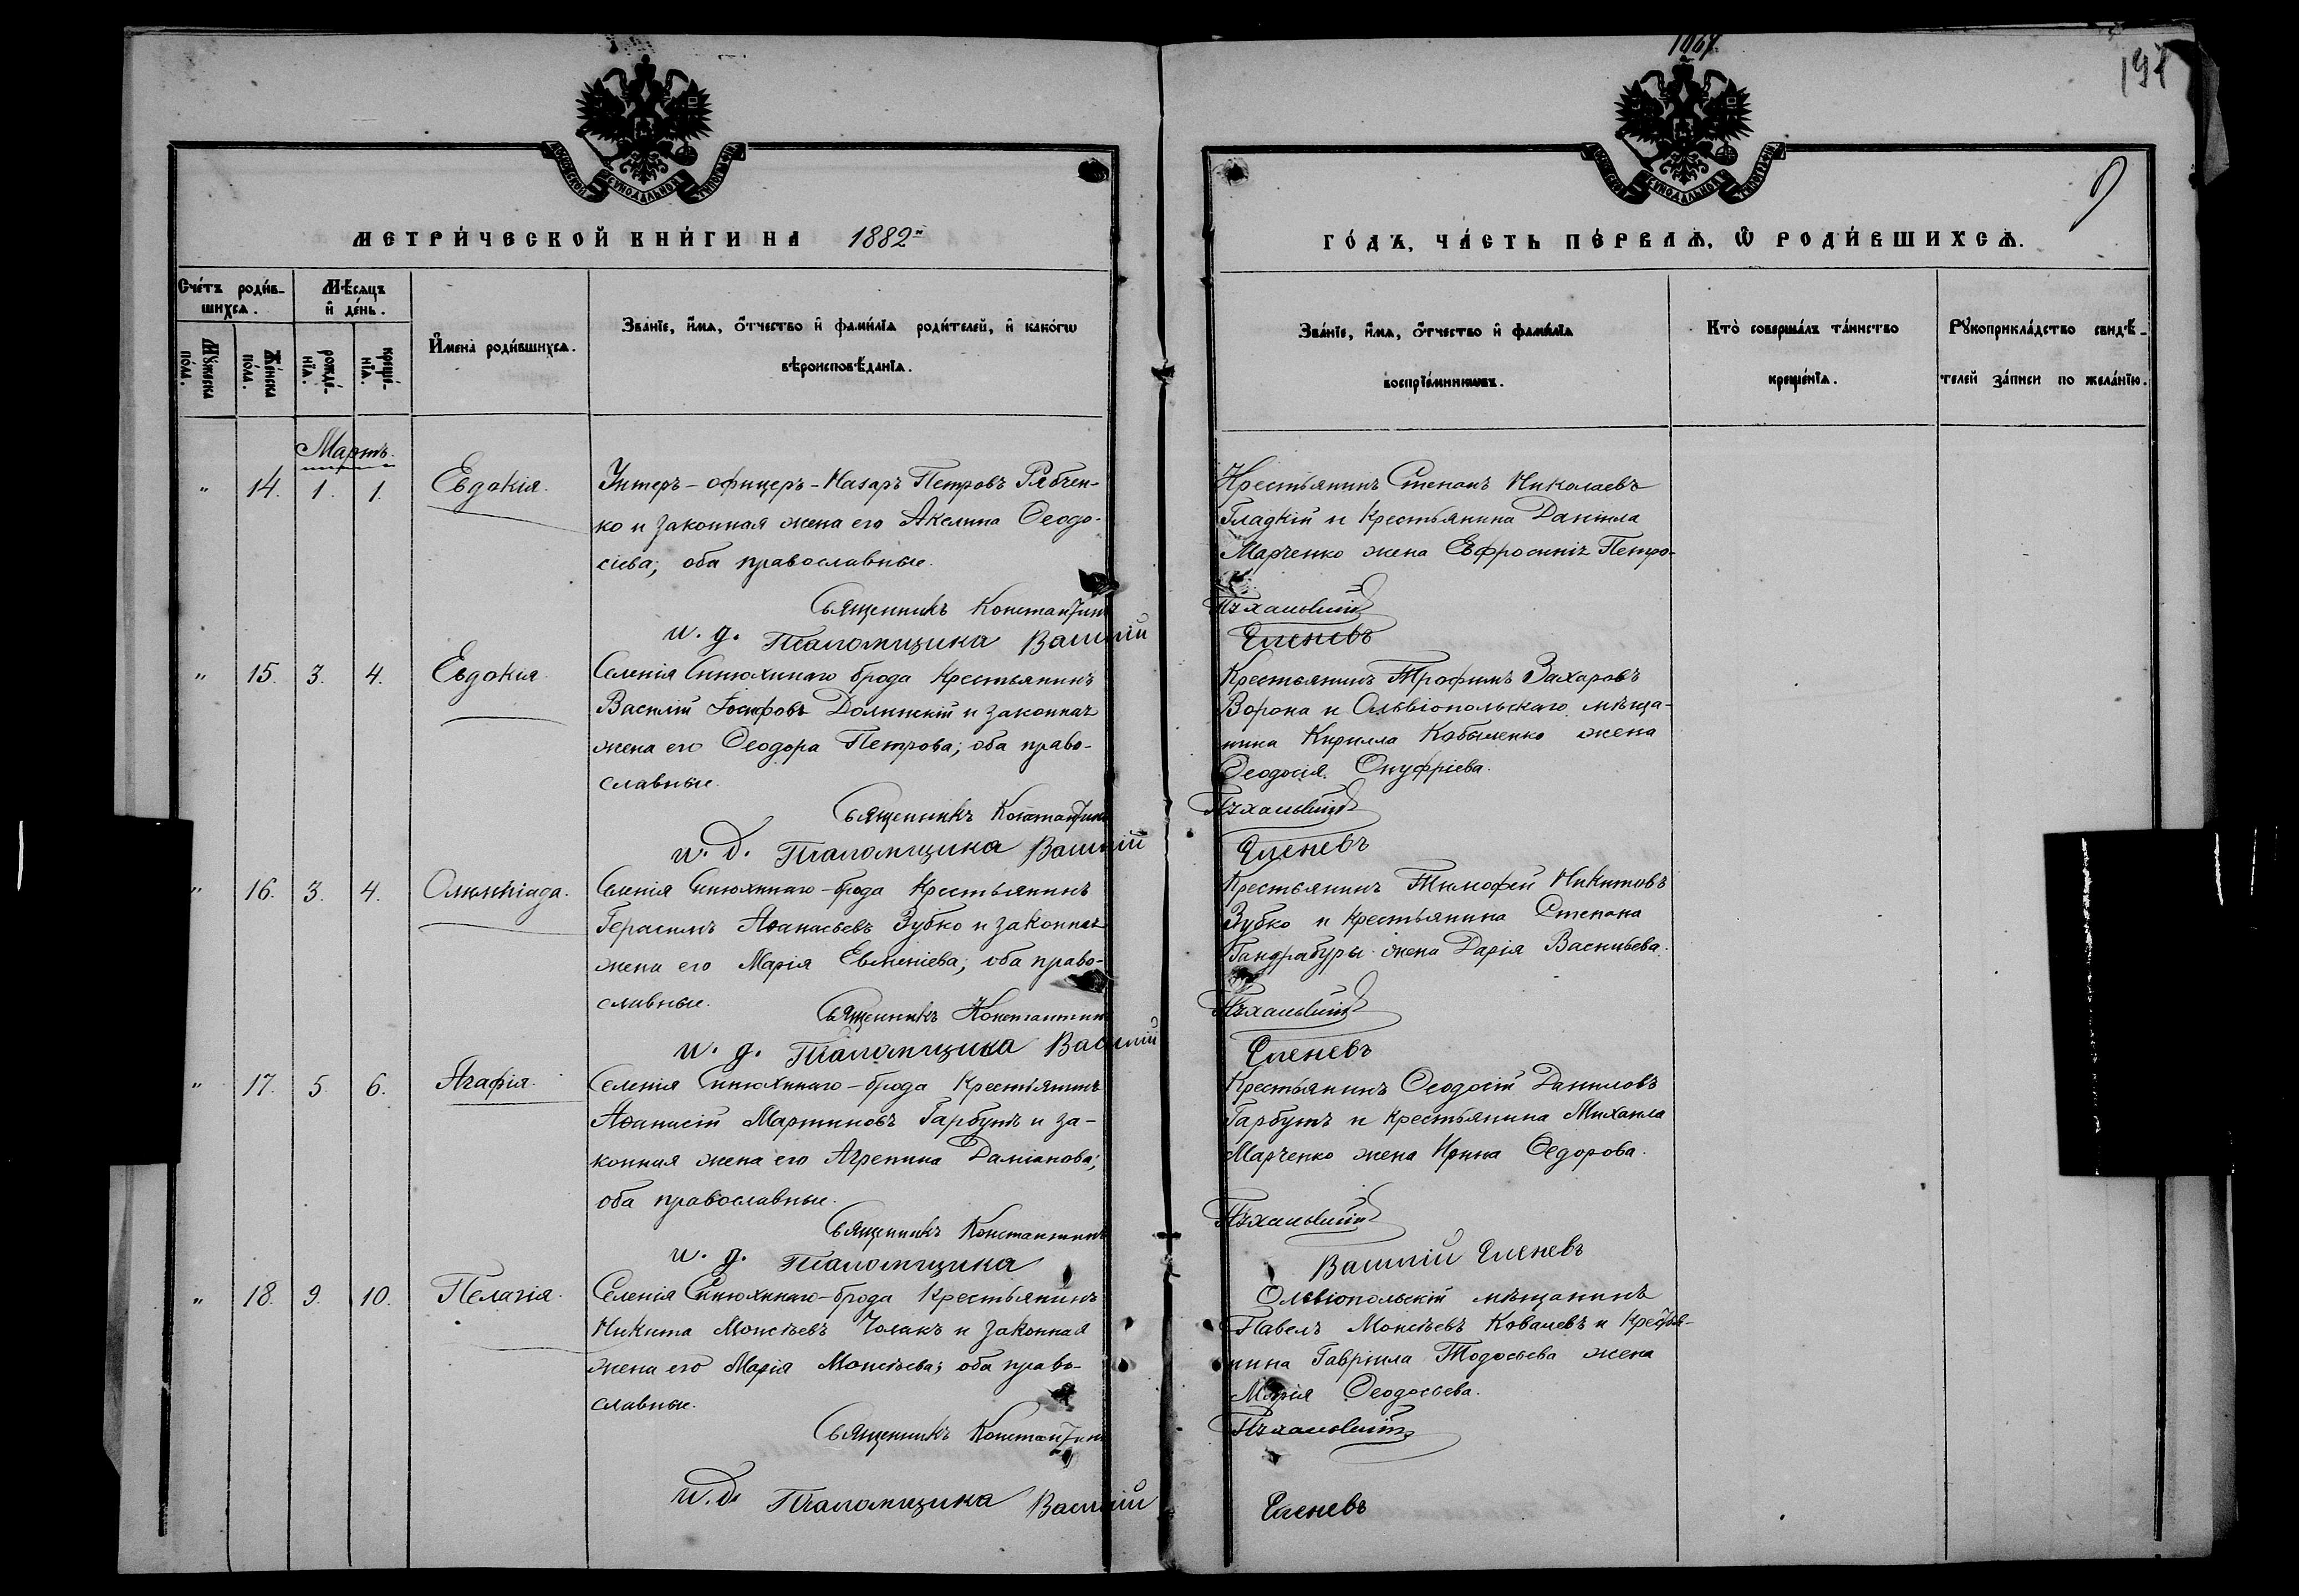 1067.
191
9
СѴНОДАЛЬНОЙ
ТИПОГРАФІИ
СѴНОДАЛЬНОЙ
ТИПОГРАФІИ
МЕТРИ́ЧЕСКОЙ КНИ́ГИ НА 1882й
ГО́ДЪ, ЧА́СТЬ ПЕ́РВАѦ, Ѡ҆ РОДИ́ВШИХСѦ.
Счетъ родив-
шихсѧ.
Мꙋжеска пола.
Женска пола.
Мѣсѧцъ
и день.
рожде-
нїѧ.
креще-
нїѧ.
Имена родившихсѧ.
Званїе, имѧ, отчество и фамилїа родителей, и какогѡ
вѣроисповѣданїѧ.
Званїе, имѧ, отчество и фамилїа
воспрїемникѡвъ.
Кто совершалъ таинство
крещенїѧ.
Рꙋкоприкладство свидѣ-
телей записи по желанїю.
Мартъ.
" 14. 1. 1. Евдокія.
Унтеръ-офицеръ-Назаръ Петровъ Рябчен-
ко и законная жена его Акелина Ѳеодо-
сіева; оба православные.
Крестьянинъ Степанъ Николаевъ
Гладкій и крестьянина Даніила
Марченко жена Евфросинія Петро-
Священникъ Константинъ
и. д. Псаломщика Василій Еленевъ
" 15. 3. 4. Евдокія.
Селенія Синюхинаго брода крестьянинъ
Василій Іосифовъ Долинскій и законная
жена его Ѳеодора Петрова; оба право-
славные.
Крестьянинъ Трофимъ Захаровъ
Ворона и Ольвіопольскаго мѣща-
нина Кирилла Кобыленко жена
Ѳеодосія Онуфріева.
Священникъ Константинъ
и. д. Псаломщика Василій Еленевъ
" 16. 3. 4. Олимпіада.
Селенія Синюхинаго-брода крестьянинъ
Герасимъ Аѳанасьевъ Зубко и законная
жена его Марія Евменіева; оба право-
славные.
Крестьянинъ Тимофей Никитовъ
Зубко и крестьянина Степана
Гандрабуры жена Дарія Васильева.
Священникъ Константинъ
и. д. Псаломщика Василій Еленевъ
" 17. 5. 6. Агафія.
Селенія Синюхинаго-брода крестьянинъ
Аѳанасій Мартиновъ Гарбузъ и за-
конная жена его Агрепина Даміанова;
оба православные.
Крестьянинъ Ѳеодосій Даниловъ
Гарбузъ и крестьянина Михаила
Марченко жена Ирина Ѳедорова.
Священникъ Константинъ
и. д. Псаломщика Василій Еленевъ
" 18. 9. 10. Пелагія.
Селенія Синюхинаго-брода крестьянинъ
Никита Моисѣевъ Чолакъ и законная
жена его Марія Моисѣева; оба право-
славные.
Ольвіопольскій мѣщанинъ
Павелъ Моисѣевъ Ковалевъ и крестья-
нина Гавріила Тодосьева жена
Марія Ѳеодосьева.
Священникъ Константинъ
и. д. Псаломщика Василій Еленевъ